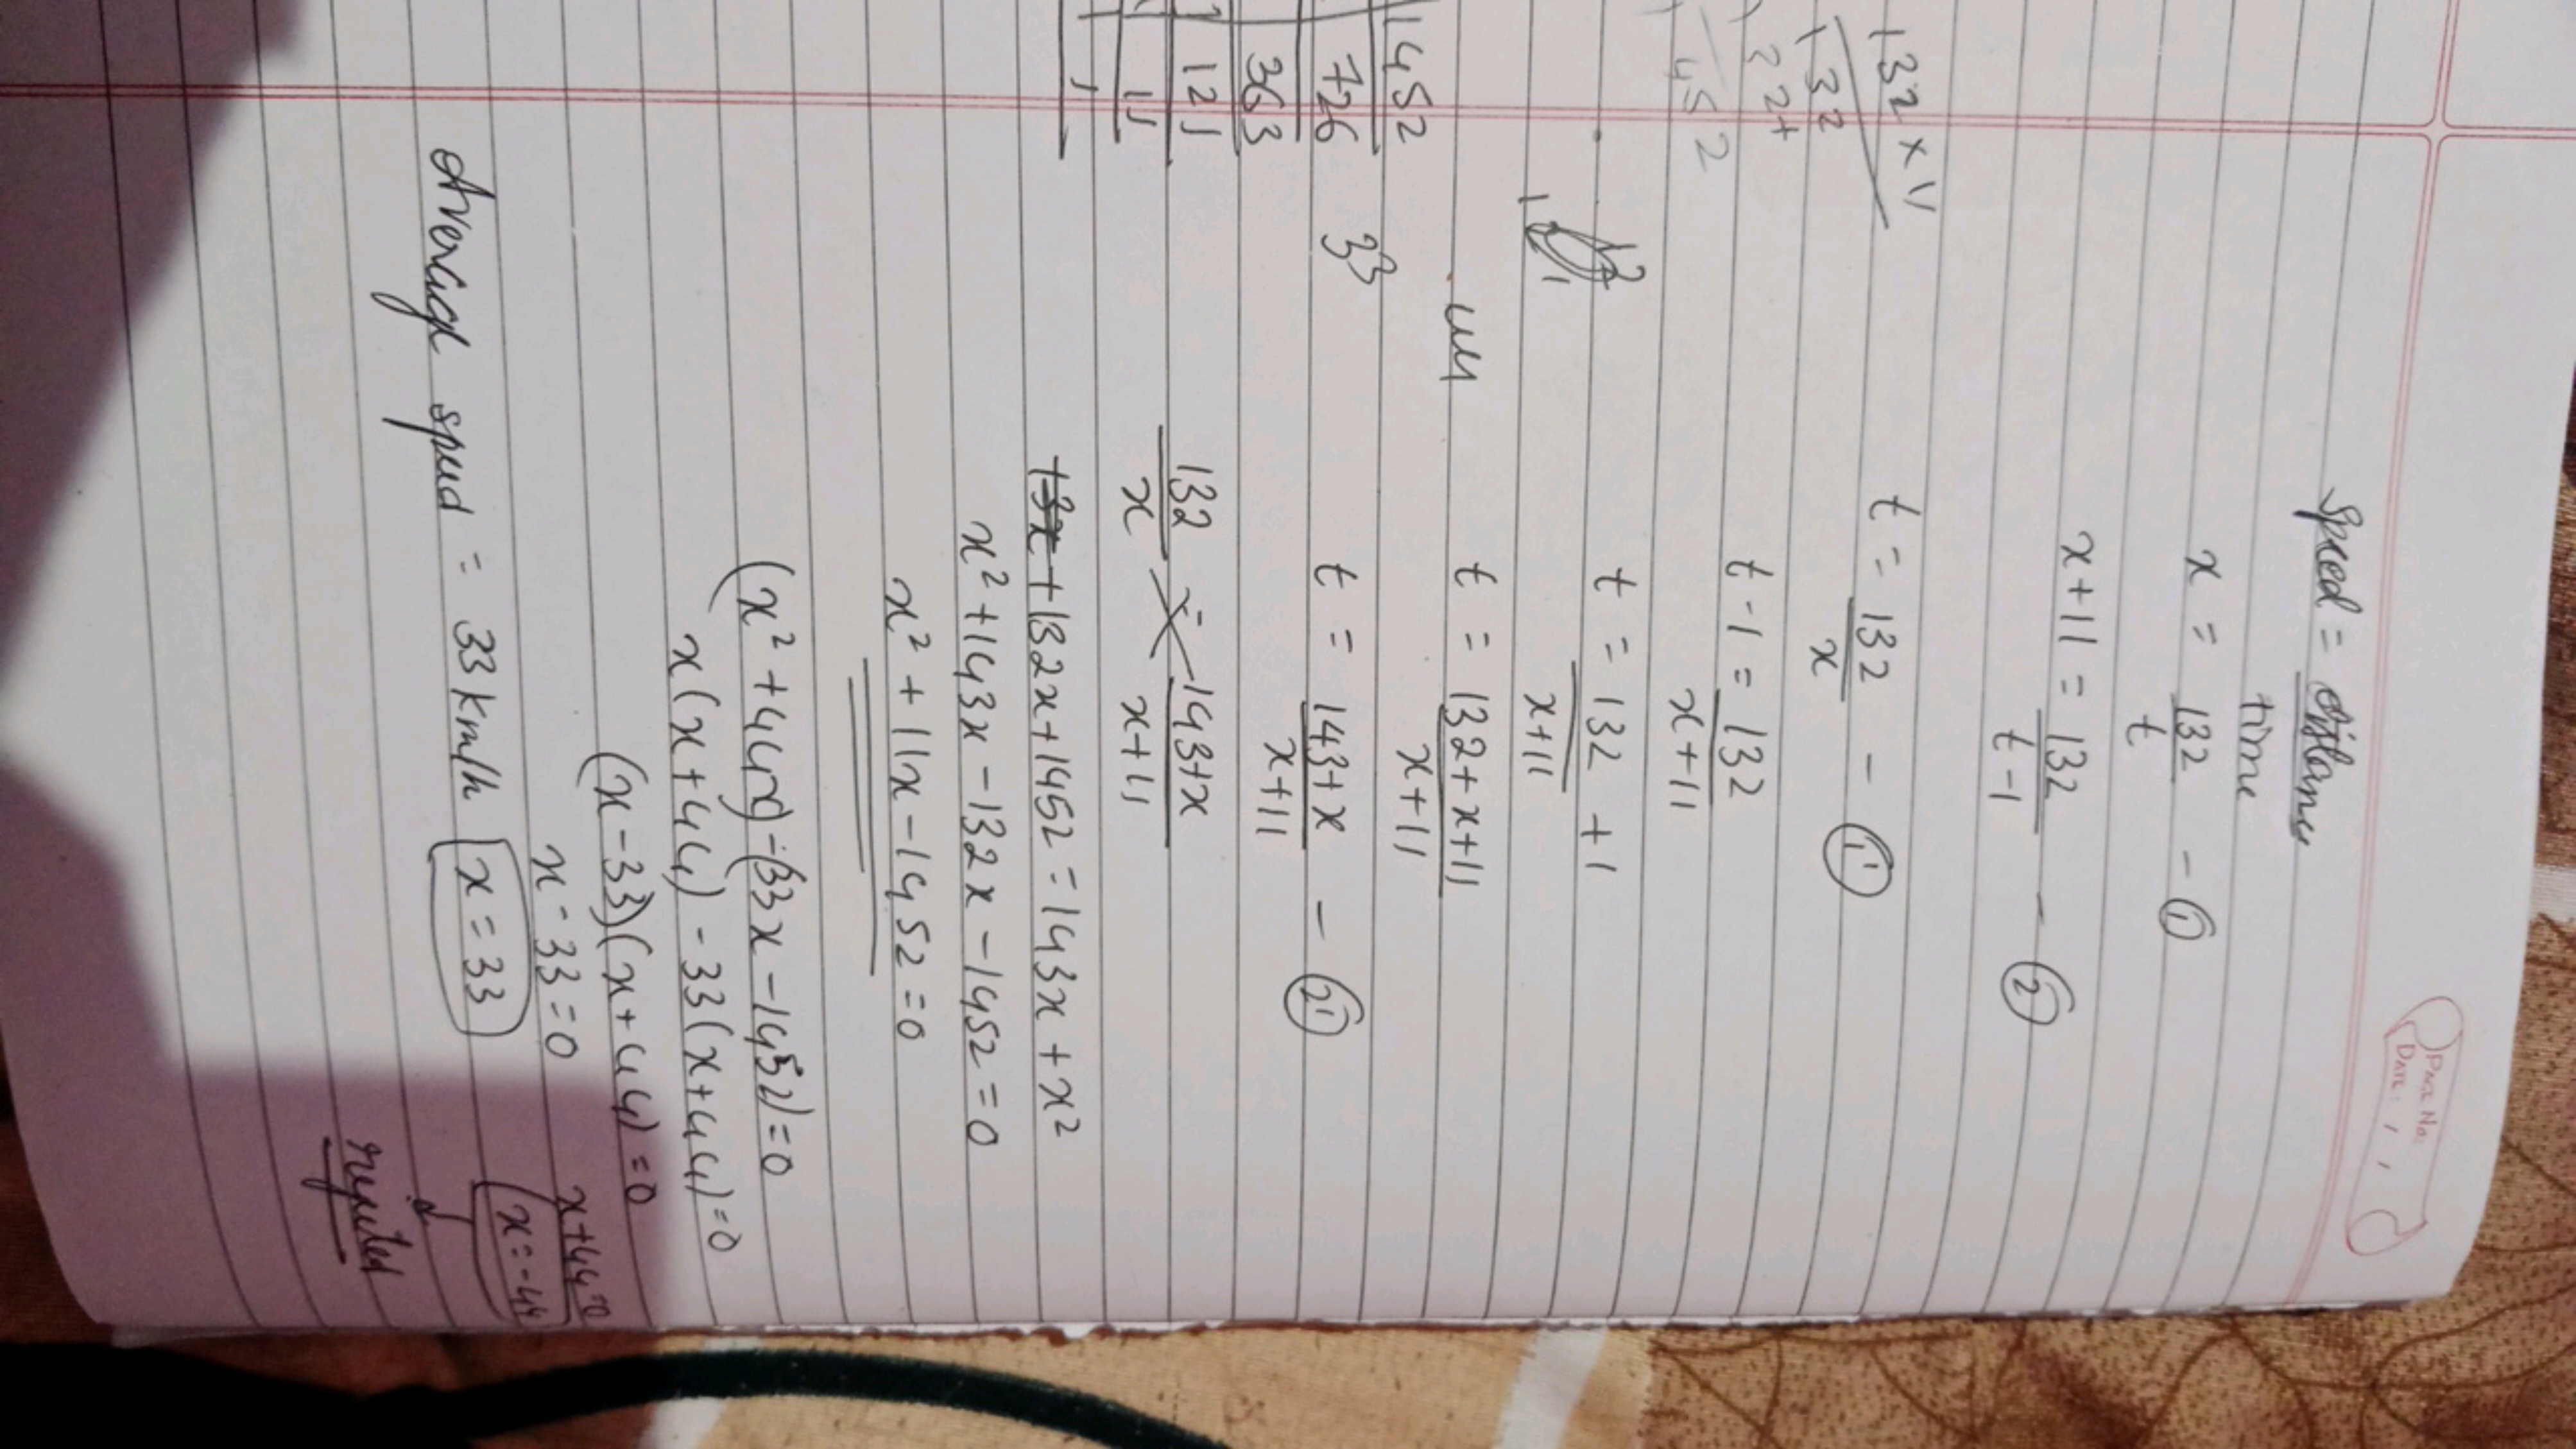 PAGE NO.
DATE: / /
Speed = distance
time
x = 132 - ①
t
x+11 = 132 - ②
t-1
t = 132 - ①
x
t-1 = 132
x+11
t = 132 +1
x+11
t = 132+x+11
x+11
t = 143+x - ②
x+11
132 = 143+x
x x+11
+132x+1452 = 143x+x²
x²+143x-132x-1452=0
x²+11x-1452=0
(x²+44x)-(33x-1452)=0
x(x+44)-33(x+44)=0
(x-33)(x+44)=0
x-33=0 x+44=0
Average speed = 33 km/h x=33 x=-44
rejected
132×11
132
132+
1452
1452
726
363
121
11
1
33
44